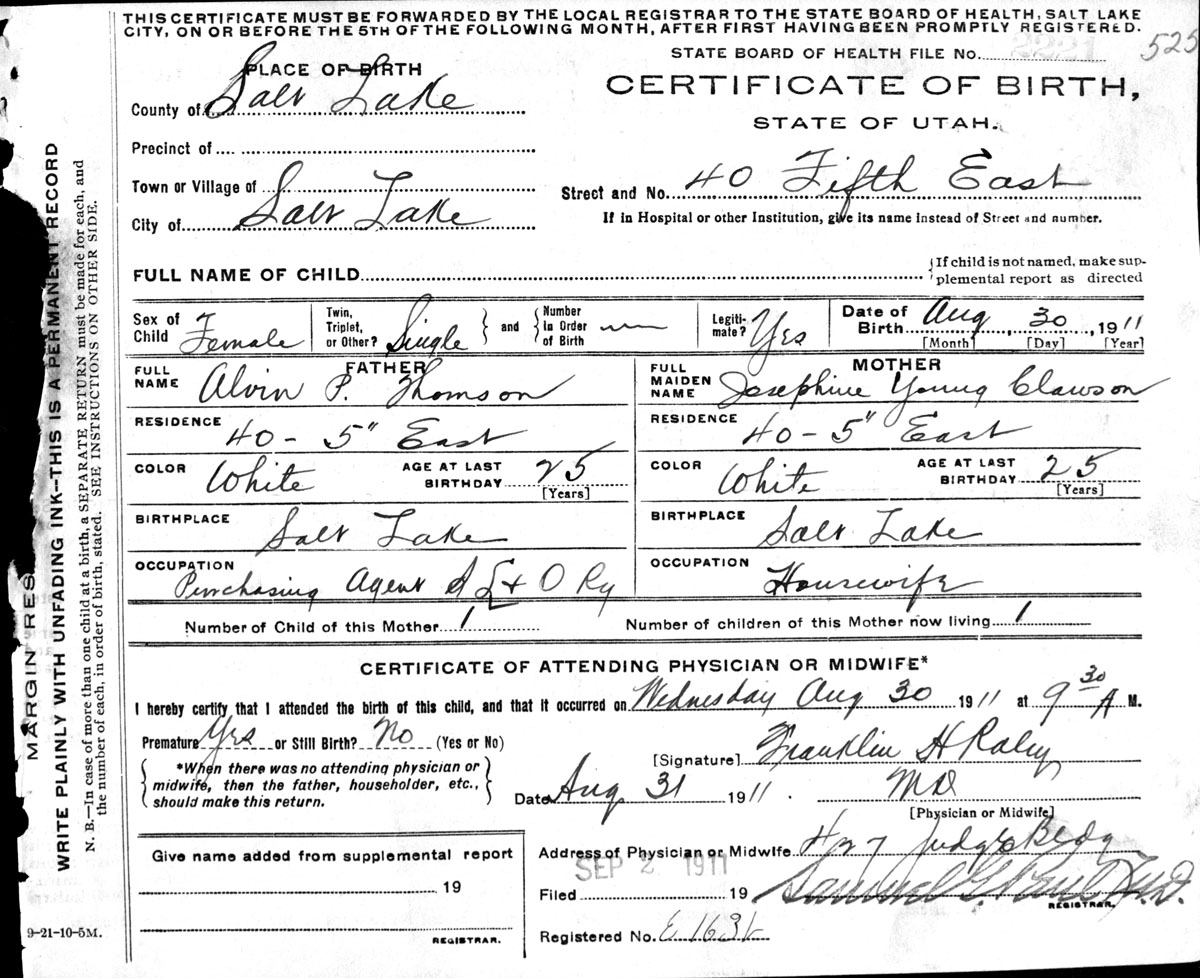 THIS CERTIFICATE MUST BE FORWARDED BY THE LOCAL REGISTRAR TO THE STATE BOARD OF HEALTH, SALT LAKE
CITY, ON OR BEFORE THE 5TH OF THE FOLLOWING MONTH, AFTER FIRST HAVING BEEN PROMPTLY REGISTERED.
STATE BOARD OF HEALTH FILE No. 525
PLACE OF BIRTH
County of Salt Lake
CERTIFICATE OF BIRTH,
STATE OF UTAH.
Precinct of
Town or Village of
Street and No. 40 Fifth East
City of Salt Lake
If in Hospital or other Institution, give its name instead of Street and number.
FULL NAME OF CHILD
If child is not named, make sup-
plemental report as directed
Sex of Child Female
Twin, Triplet, or Other? Single
and
Number in Order of Birth
Legiti-mate? Yes
Date of Birth Aug 30, 1911
[Month] [Day] [Year]
FATHER
FULL NAME Alvin P. Thomson
RESIDENCE 40 - 5" East
COLOR White
AGE AT LAST BIRTHDAY 25
[Years]
BIRTHPLACE Salt Lake
OCCUPATION Purchasing Agent S L & O Ry
MOTHER
FULL MAIDEN NAME Josephine Young Clawson
RESIDENCE 40 - 5" East
COLOR White
AGE AT LAST BIRTHDAY 25
[Years]
BIRTHPLACE Salt Lake
OCCUPATION Housewife
Number of Child of this Mother 1
Number of children of this Mother now living 1
CERTIFICATE OF ATTENDING PHYSICIAN OR MIDWIFE*
I hereby certify that I attended the birth of this child, and that it occurred on Wednesday Aug 30 1911 at 9 30 A M.
Premature Yes or Still Birth? No (Yes or No)
*When there was no attending physician or
midwife, then the father, householder, etc.,
should make this return.
[Signature] Franklin H Raley
Date Aug 31 1911. MD
[Physician or Midwife]
Address of Physician or Midwife 427 Judge Bldg
SEP 2 1911
Filed 19
REGISTRAR.
Registered No. E 1631
Give name added from supplemental report
19
REGISTRAR.
MARGIN RES
WRITE PLAINLY WITH UNFADING INK--THIS IS A PERMANENT RECORD
N. B.--In case of more than one child at a birth, a SEPARATE RETURN must be made for each, and
the number of each, in order of birth, stated. SEE INSTRUCTIONS ON OTHER SIDE.
9-21-10-5M.